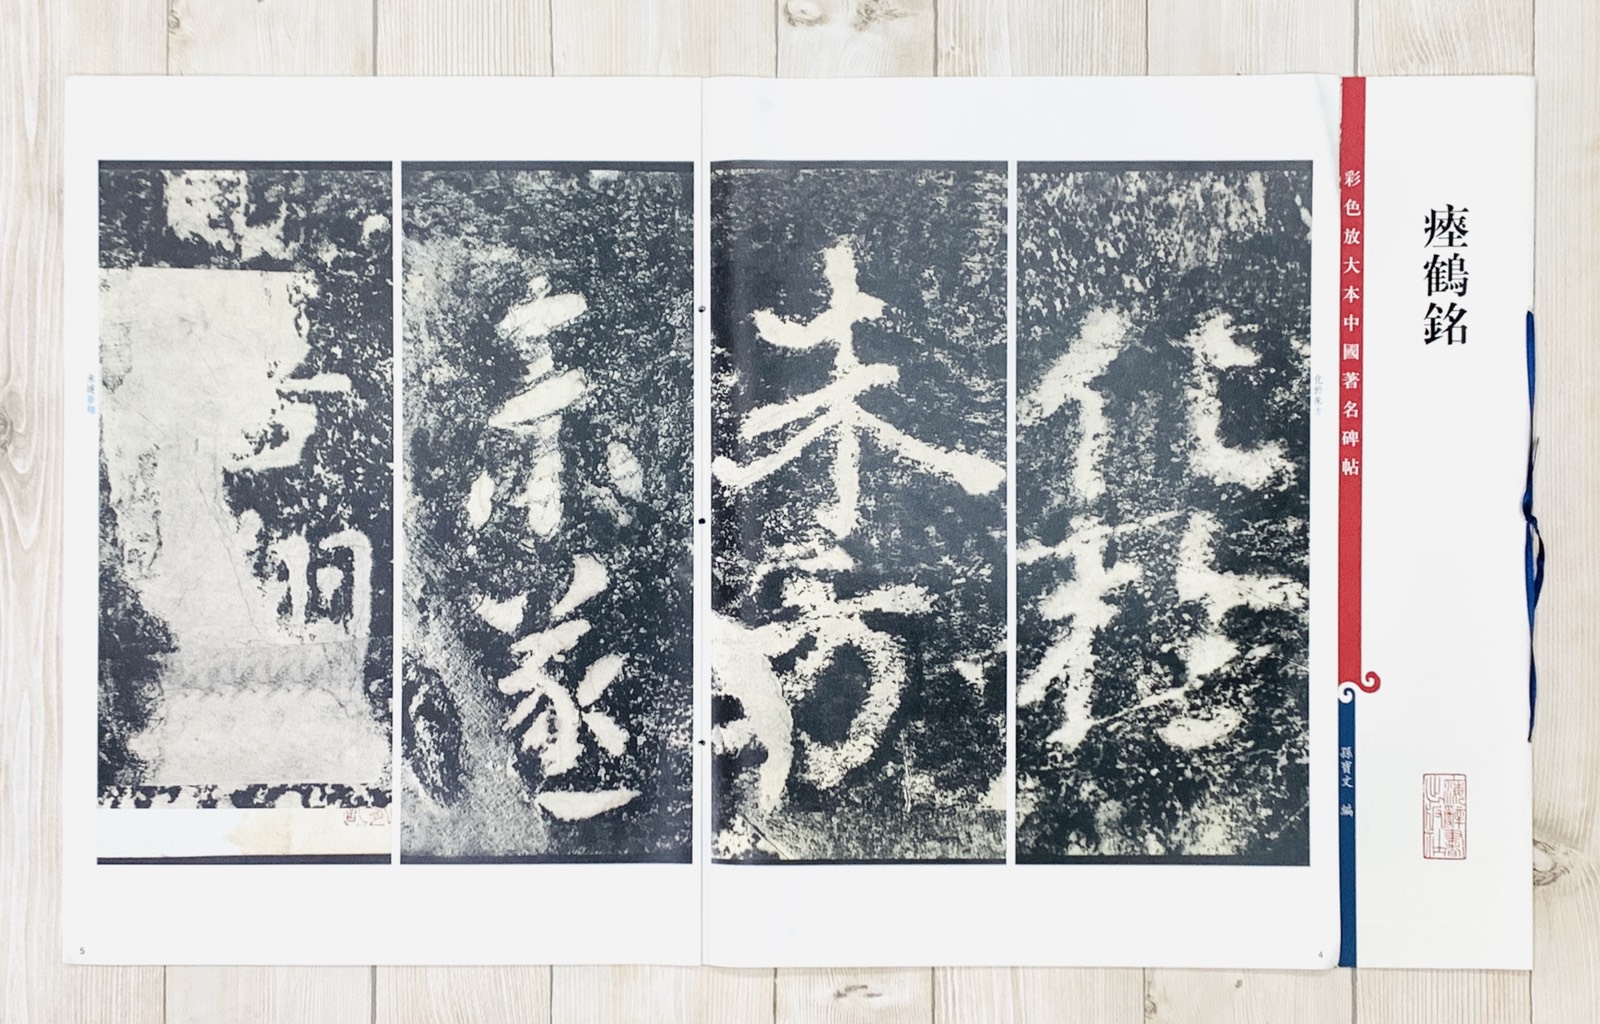 瘞鶴銘
彩色放大本中國著名碑帖
孫寶文 編
化於朱方
化於
朱方
遂
未遂吾翔
4
5